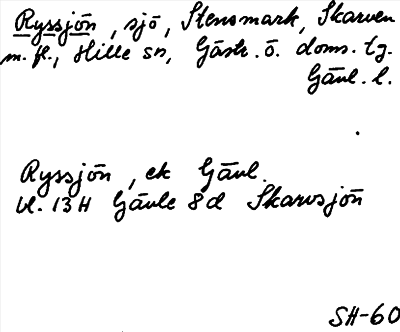 Ryssjön, sjö, Stensmark, Skarven
m. fl., Hille sn, Gästr. ö. doms. tg.
Gävl. l.
Ryssjön, ek Gävl.
bl. 13 H Gävle 8d Skarvsjön
SH-60